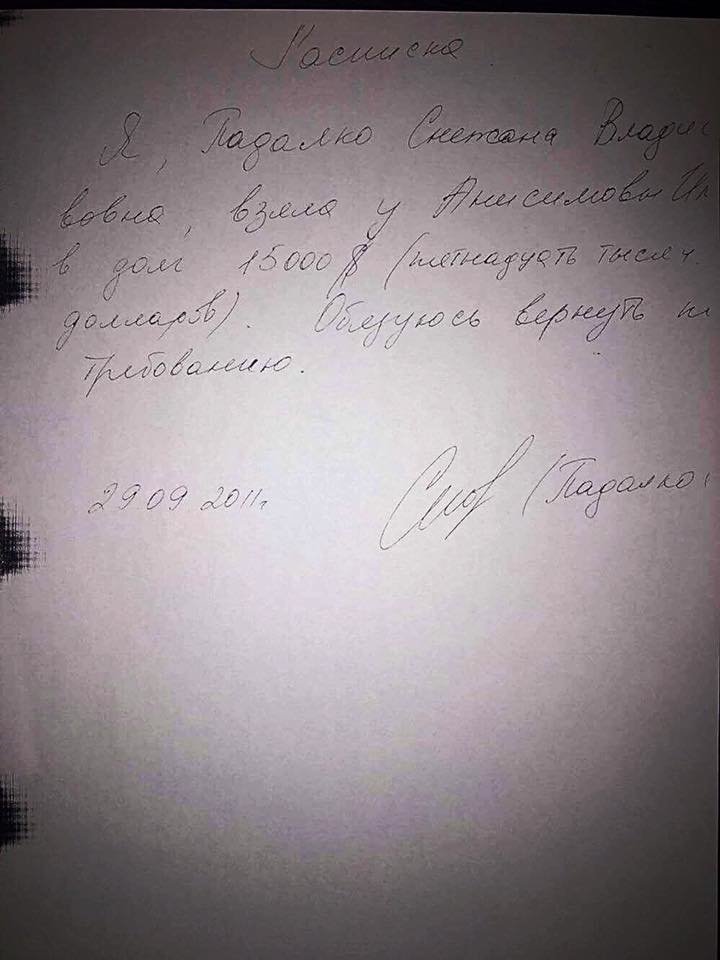 Расписка
Я, Падалко Снежана Влади
вовна, взяла у Анисимовы
в долг 15000 $ (пятнадцать тысяч
долларов). Обязуюсь вернуть
требованию.
29 09 2011г (Падалко